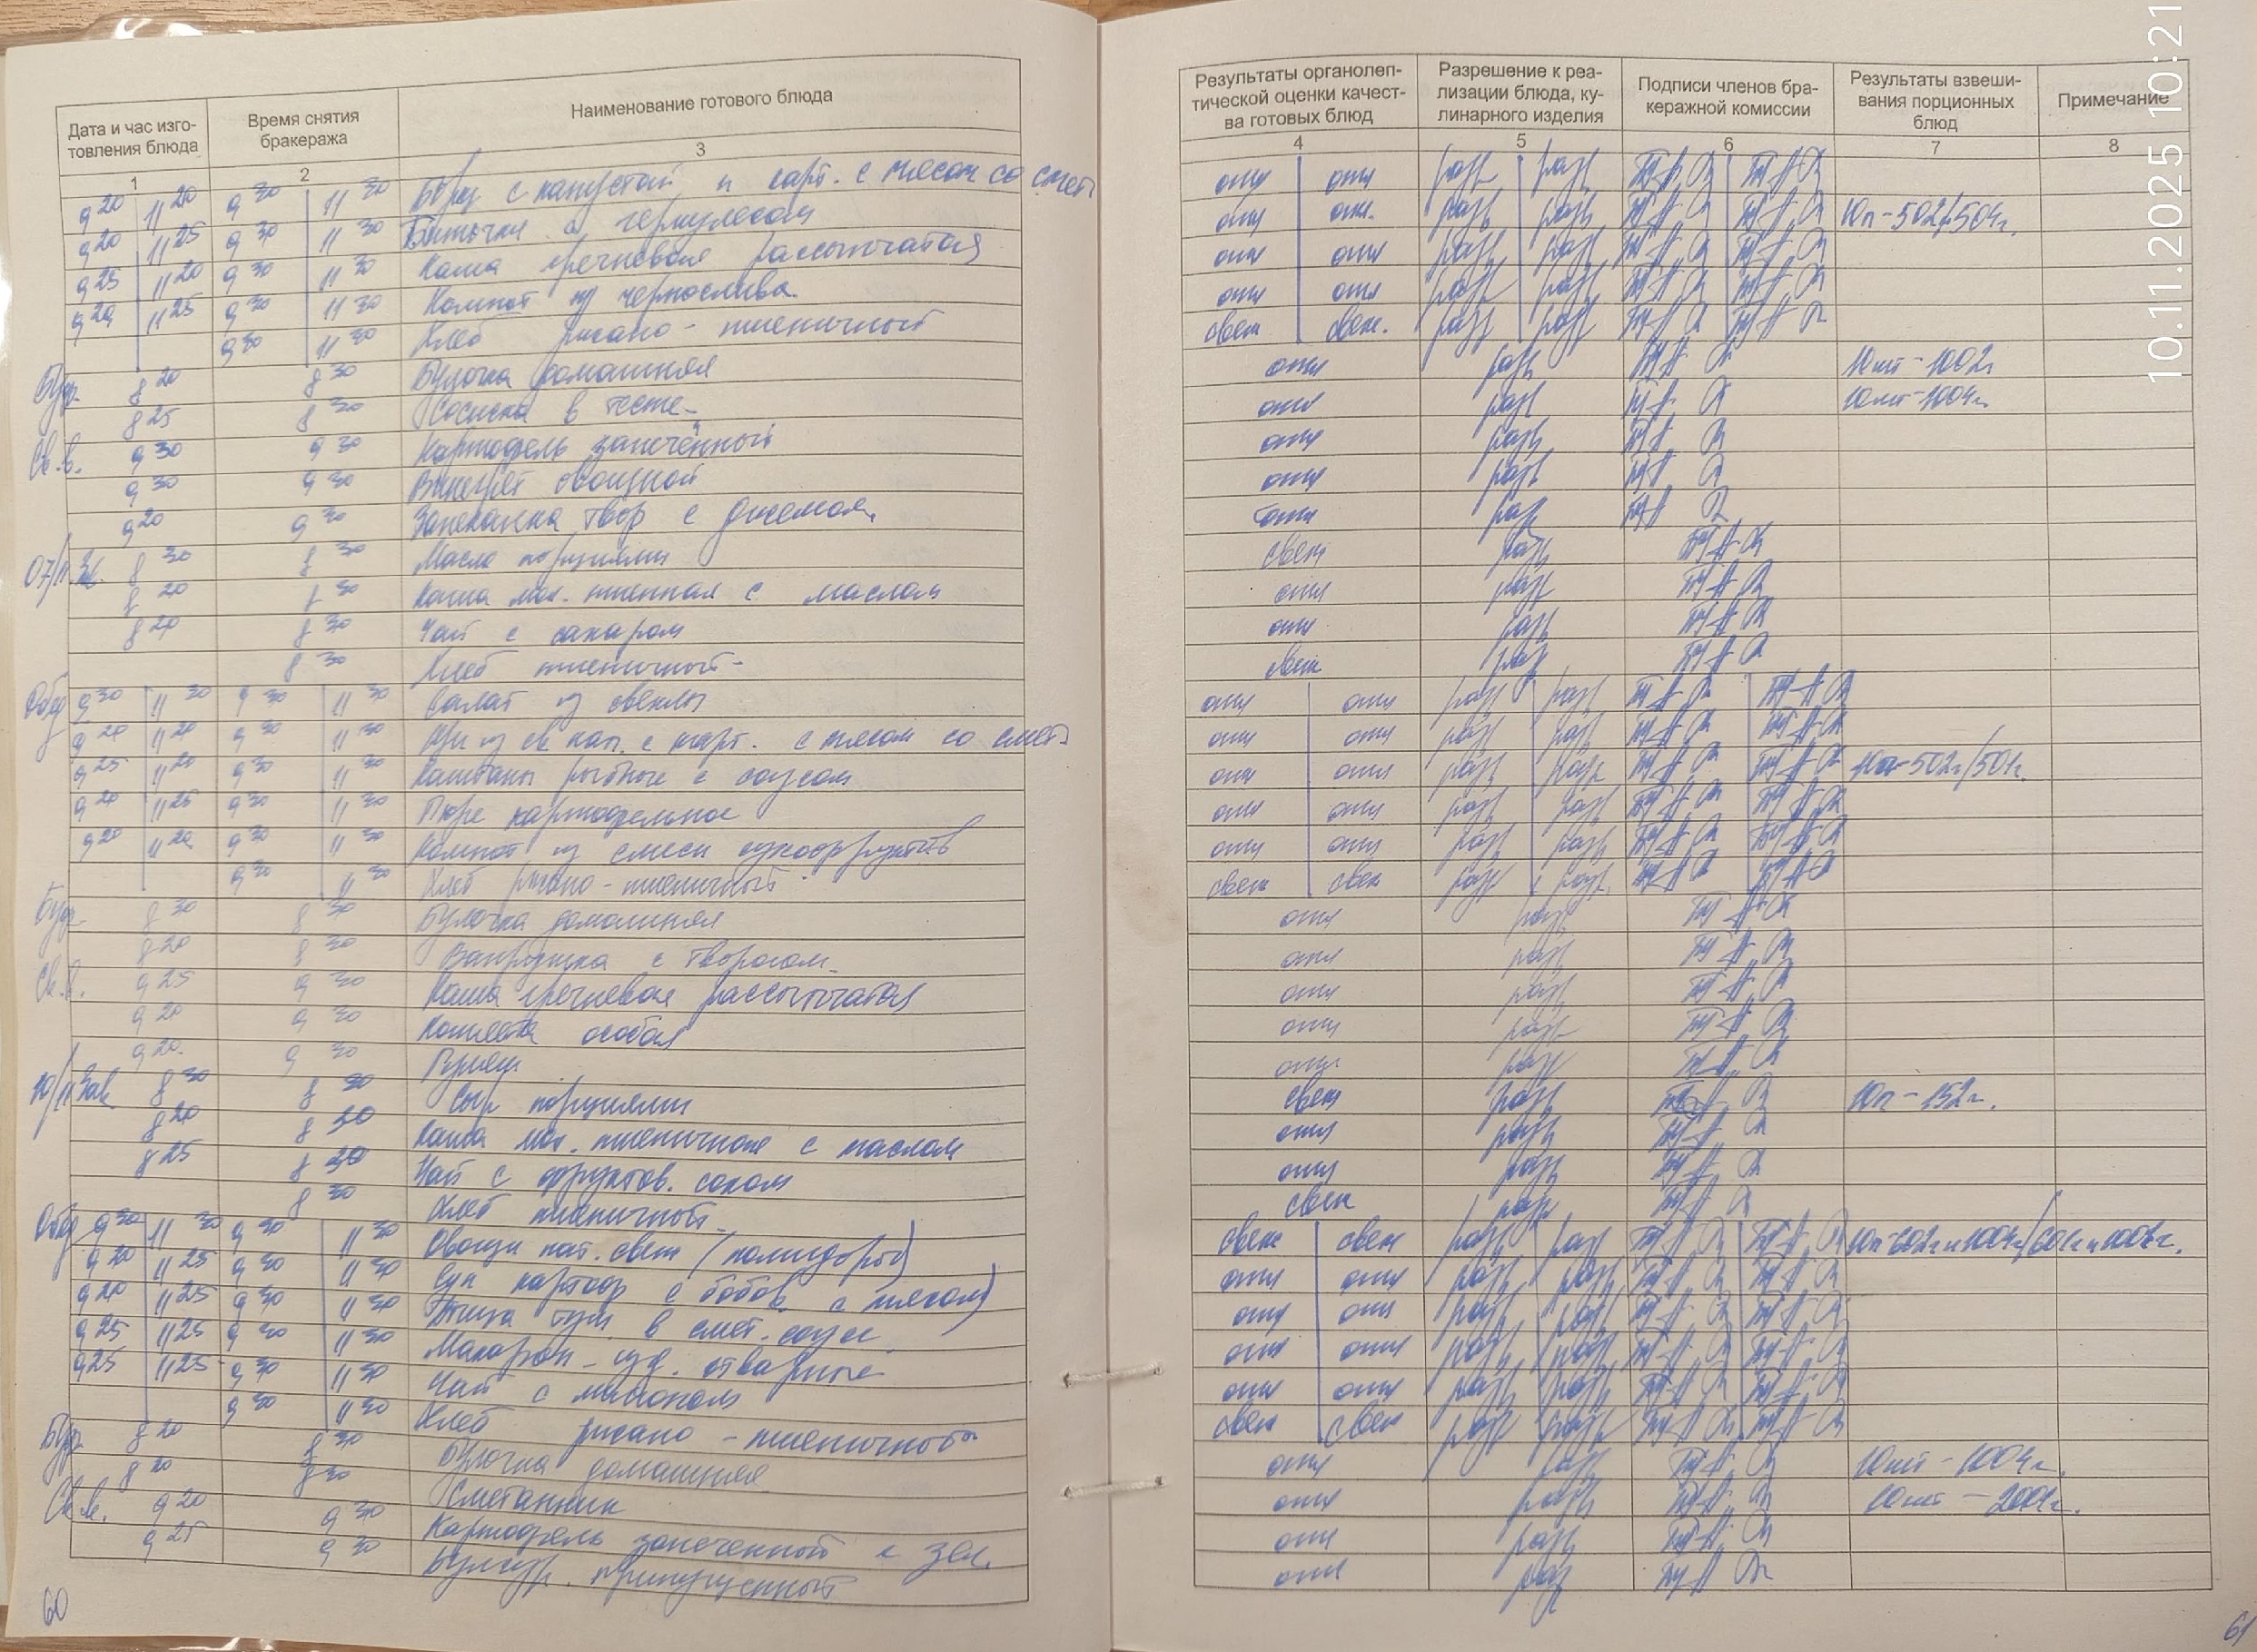 Дата и час изго-
товления блюда
Время снятия
бракеража
Наименование готового блюда
1 2 3
9 20 11 20 9 30 11 30 Борщ с капустой и карт. с мясом со смет
9 20 11 25 9 30 11 30 Биточки с геркулесом
9 25 11 20 9 30 11 30 Каша гречневая рассыпчатая
9 20 11 25 9 30 11 30 Компот из чернослива
9 30 11 30 Хлеб ржано-пшеничный
Буф. 8 20 8 30 Булочка домашняя
8 25 8 30 Сосиска в тесте
Св.в. 9 30 9 30 Картофель запечённый
9 30 9 30 Винегрет овощной
9 20 9 30 Запеканка твор с джемом
07/11 Зав. 8 30 8 30 Масло порциями
8 20 8 30 Каша мол. пшенная с маслом
8 20 8 30 Чай с сахаром
8 30 Хлеб пшеничный
Обед 9 30 11 30 9 30 11 30 Салат из свеклы
9 20 11 20 9 30 11 30 Щи из св кап. с карт. с мясом со смет.
9 25 11 20 9 30 11 30 рыбные с соусом
9 20 11 25 9 30 11 30 Пюре картофельное
9 20 11 20 9 30 11 30 Компот из смеси сухофруктов
9 30 11 30 Хлеб ржано-пшеничный
Буф. 8 30 8 30 Булочка домашняя
8 20 8 30 Ватрушка с творогом
Св.в. 9 25 9 30 Каша гречневая рассыпчатая
9 20 9 30 Котлета особая
9 20 9 30 Гуляш
10/11 Зав 8 30 8 30 Сыр порциями
8 20 8 30 Каша мол. пшеничная с маслом
8 25 8 30 Чай с фруктов. соком
8 30 Хлеб пшеничный
Обед 9 30 11 30 9 30 11 30 Овощи нат. свеж (помидоры)
9 20 11 25 9 30 11 30 Суп картоф с бобов. с мясом
9 20 11 25 9 30 11 30 Птица туш. в смет. соусе
9 25 11 25 9 30 11 30 Макарон. изд. отварные
9 25 11 25 9 30 11 30 Чай с лимоном
9 30 11 30 Хлеб ржано-пшеничный
Буф 8 20 8 30 Булочка домашняя
8 20 8 30 Сметанник
Св.в. 9 20 9 30 Картофель запеченный с зел.
9 25 9 30 Булгур припущенный
60
Результаты органолеп-
тической оценки качест-
ва готовых блюд
Разрешение к реа-
лизации блюда, ку-
линарного изделия
Подписи членов бра-
керажной комиссии
Результаты взвеши-
вания порционных
блюд
Примечание
4 5 6 7 8
отл отл разр разр
отл отл. разр разр 10п-502г/504г.
отл отл разр разр
отл отл разр разр
свеж свеж. разр разр
отл разр 10шт-1002г
отл разр 10шт-1004г
отл разр
отл разр
отл разр
свеж разр
отл разр
отл разр
свеж разр
отл отл разр разр
отл отл разр разр
отл отл разр разр 10п-502г/501г.
отл отл разр разр
отл отл разр разр
свеж свеж разр разр.
отл разр
отл разр
отл разр
отл разр
отл разр
свеж разр 10п-152г.
отл разр
отл разр
свеж разр
свеж свеж разр разр
отл отл разр разр
отл отл разр разр
отл отл разр разр
отл отл разр разр
свеж свеж разр разр
отл разр 10шт-1004г.
отл разр 10шт
отл разр
отл разр
61
10.11.2025 10:21